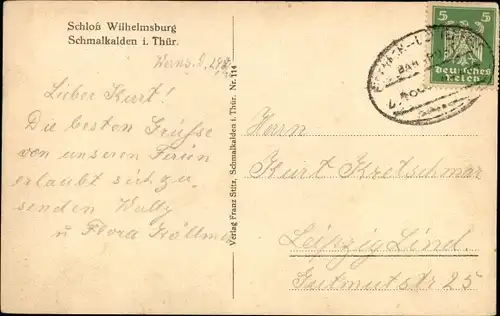 Schloß Wilhelmsburg
Schmalkalden i. Thür.
Lieber Kurt!
Die besten Grüsse
von unseren Ferien
erlaubt sich zu
senden Wally
u Flora Köllme
Verlag Franz Stitz, Schmalkalden i. Thür. Nr. 114
5 5
Deutsches
Reich
Herrn
Kurt Kretschmar
Leipzig Lind.
Gutmutstr 25